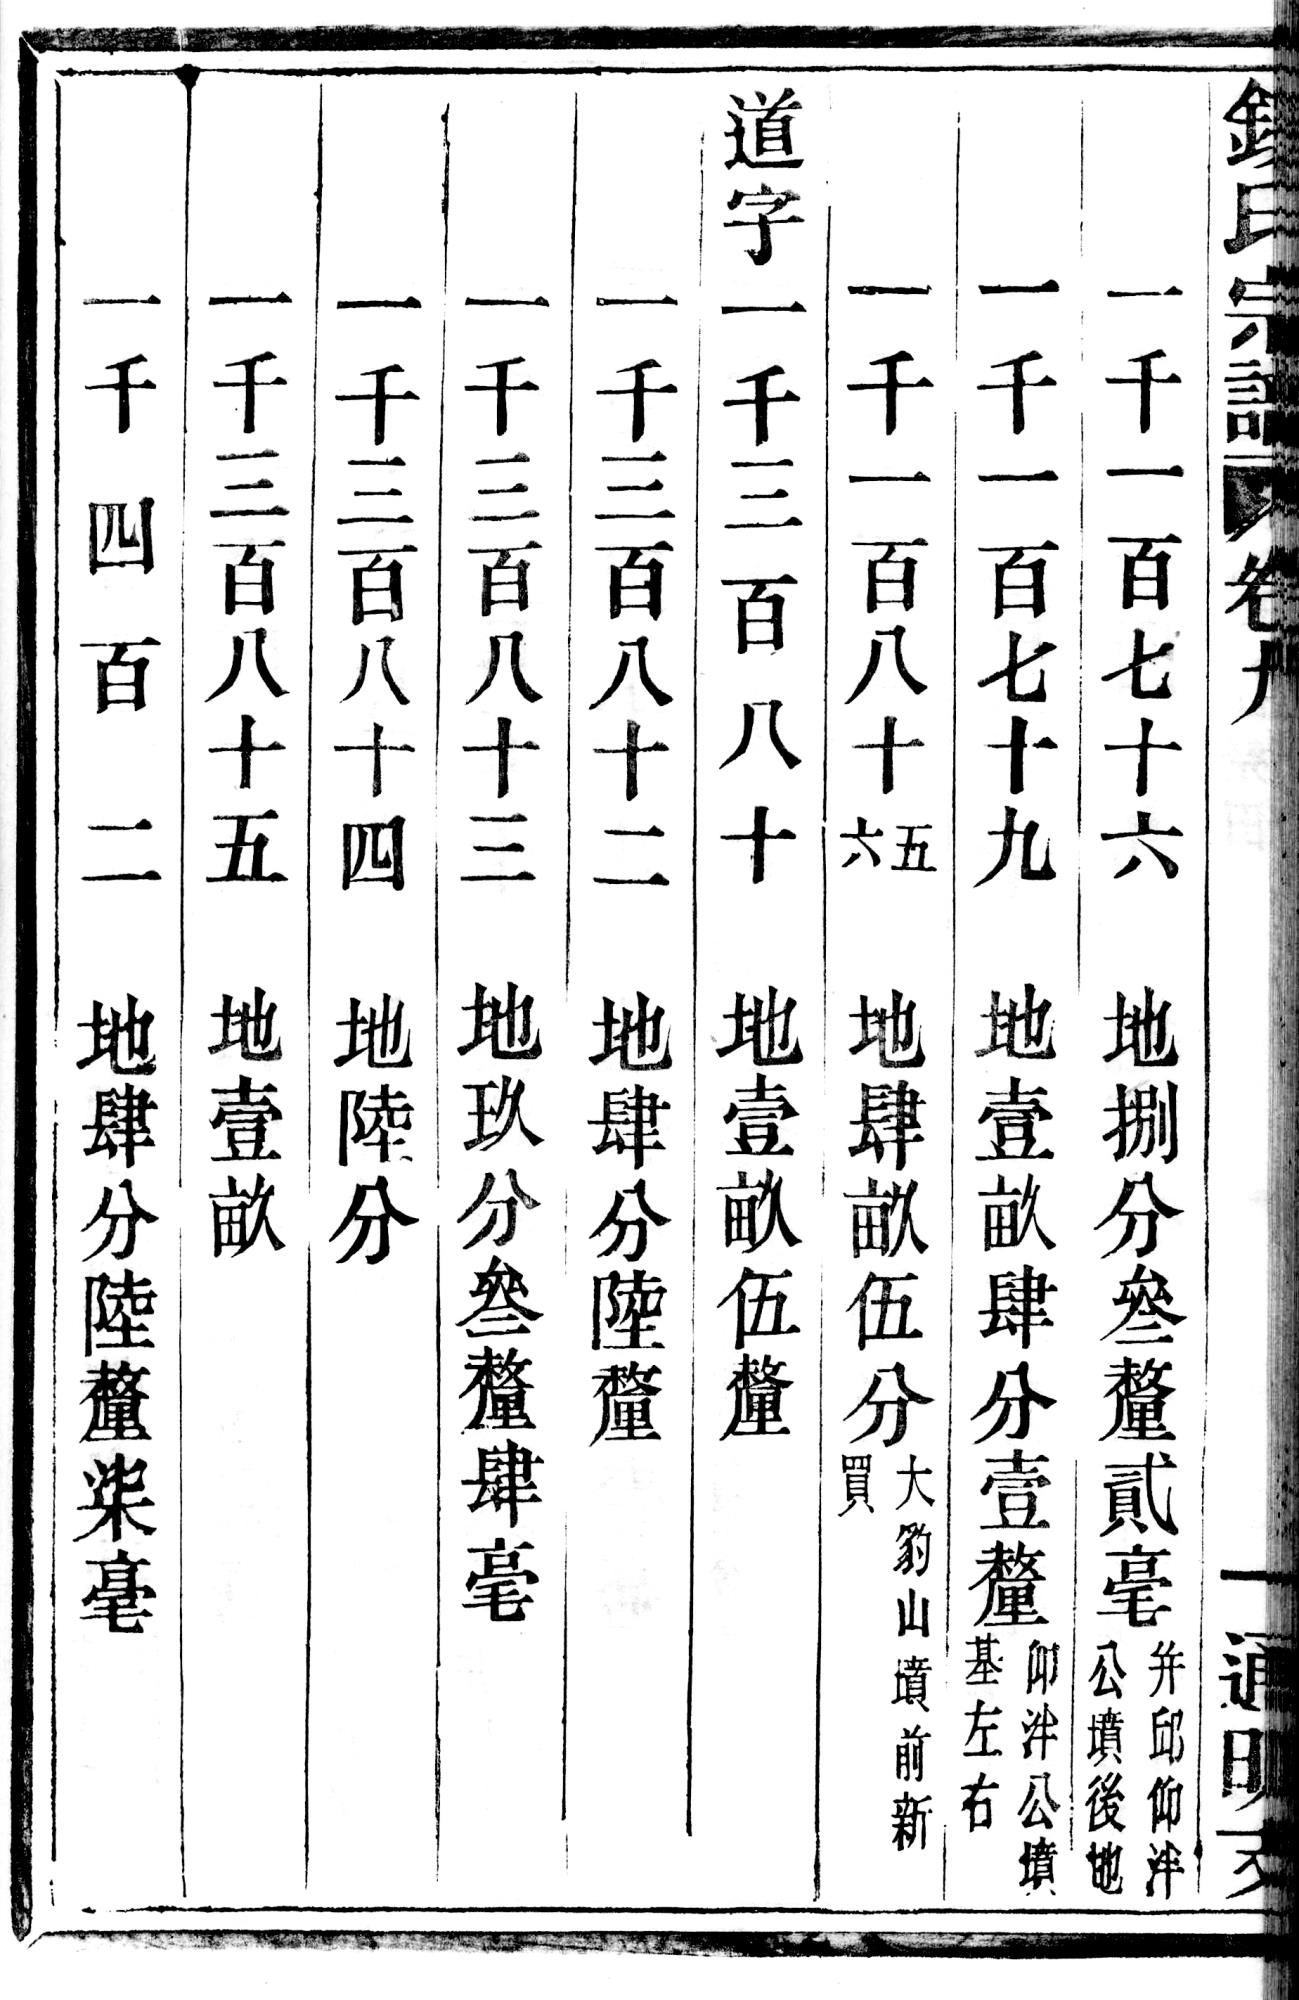 錢氏宗譜 卷九 通明支
一千一百七十六 地捌分叄釐貳毫 幷邱仰泮公墳後地
一千一百七十九 地壹畝肆分壹釐 仰泮公墳基左右
一千一百八十五六 地肆畝伍分 大豹山墳前新買
道字一千三百八十 地壹畝伍釐
一千三百八十二 地肆分陸釐
一千三百八十三 地玖分叄釐肆毫
一千三百八十四 地陸分
一千三百八十五 地壹畝
一千四百二 地肆分陸釐柒毫